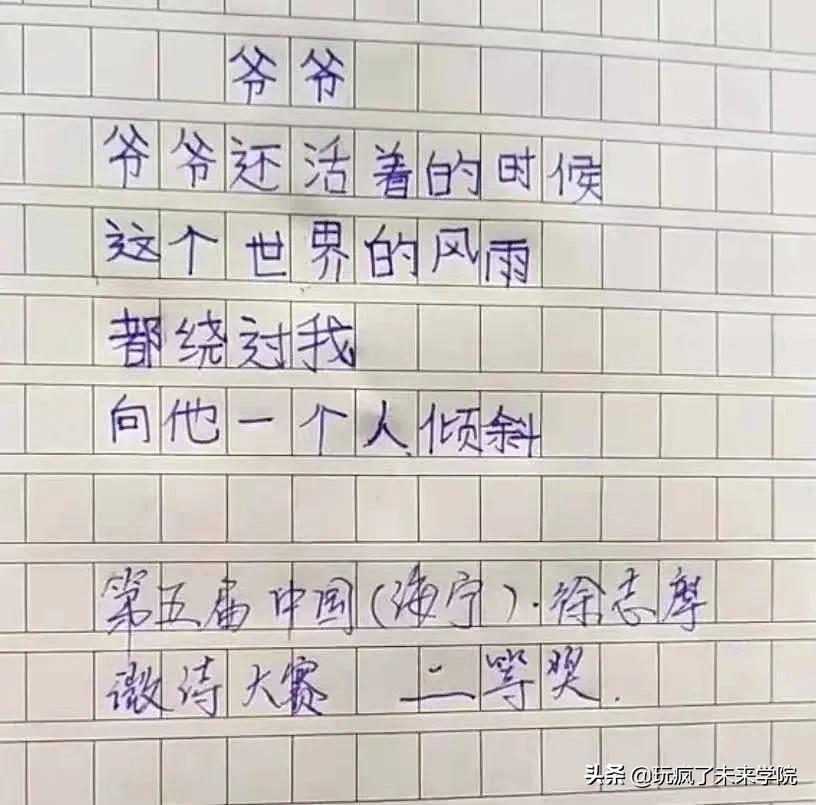 爷爷
爷爷还活着的时候
这个世界的风雨
都绕过我
向他一个人倾斜
第五届中国(海宁)·徐志摩
微诗大赛 二等奖.
头条 @玩疯了未来学院